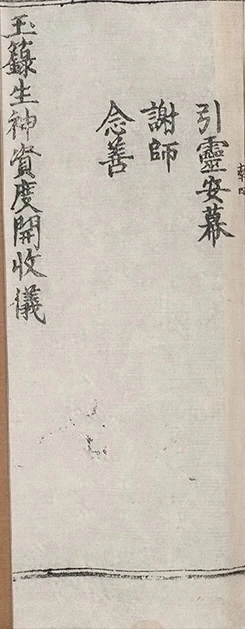 引靈安幕
謝師
念善
玉籙生神資度開收儀